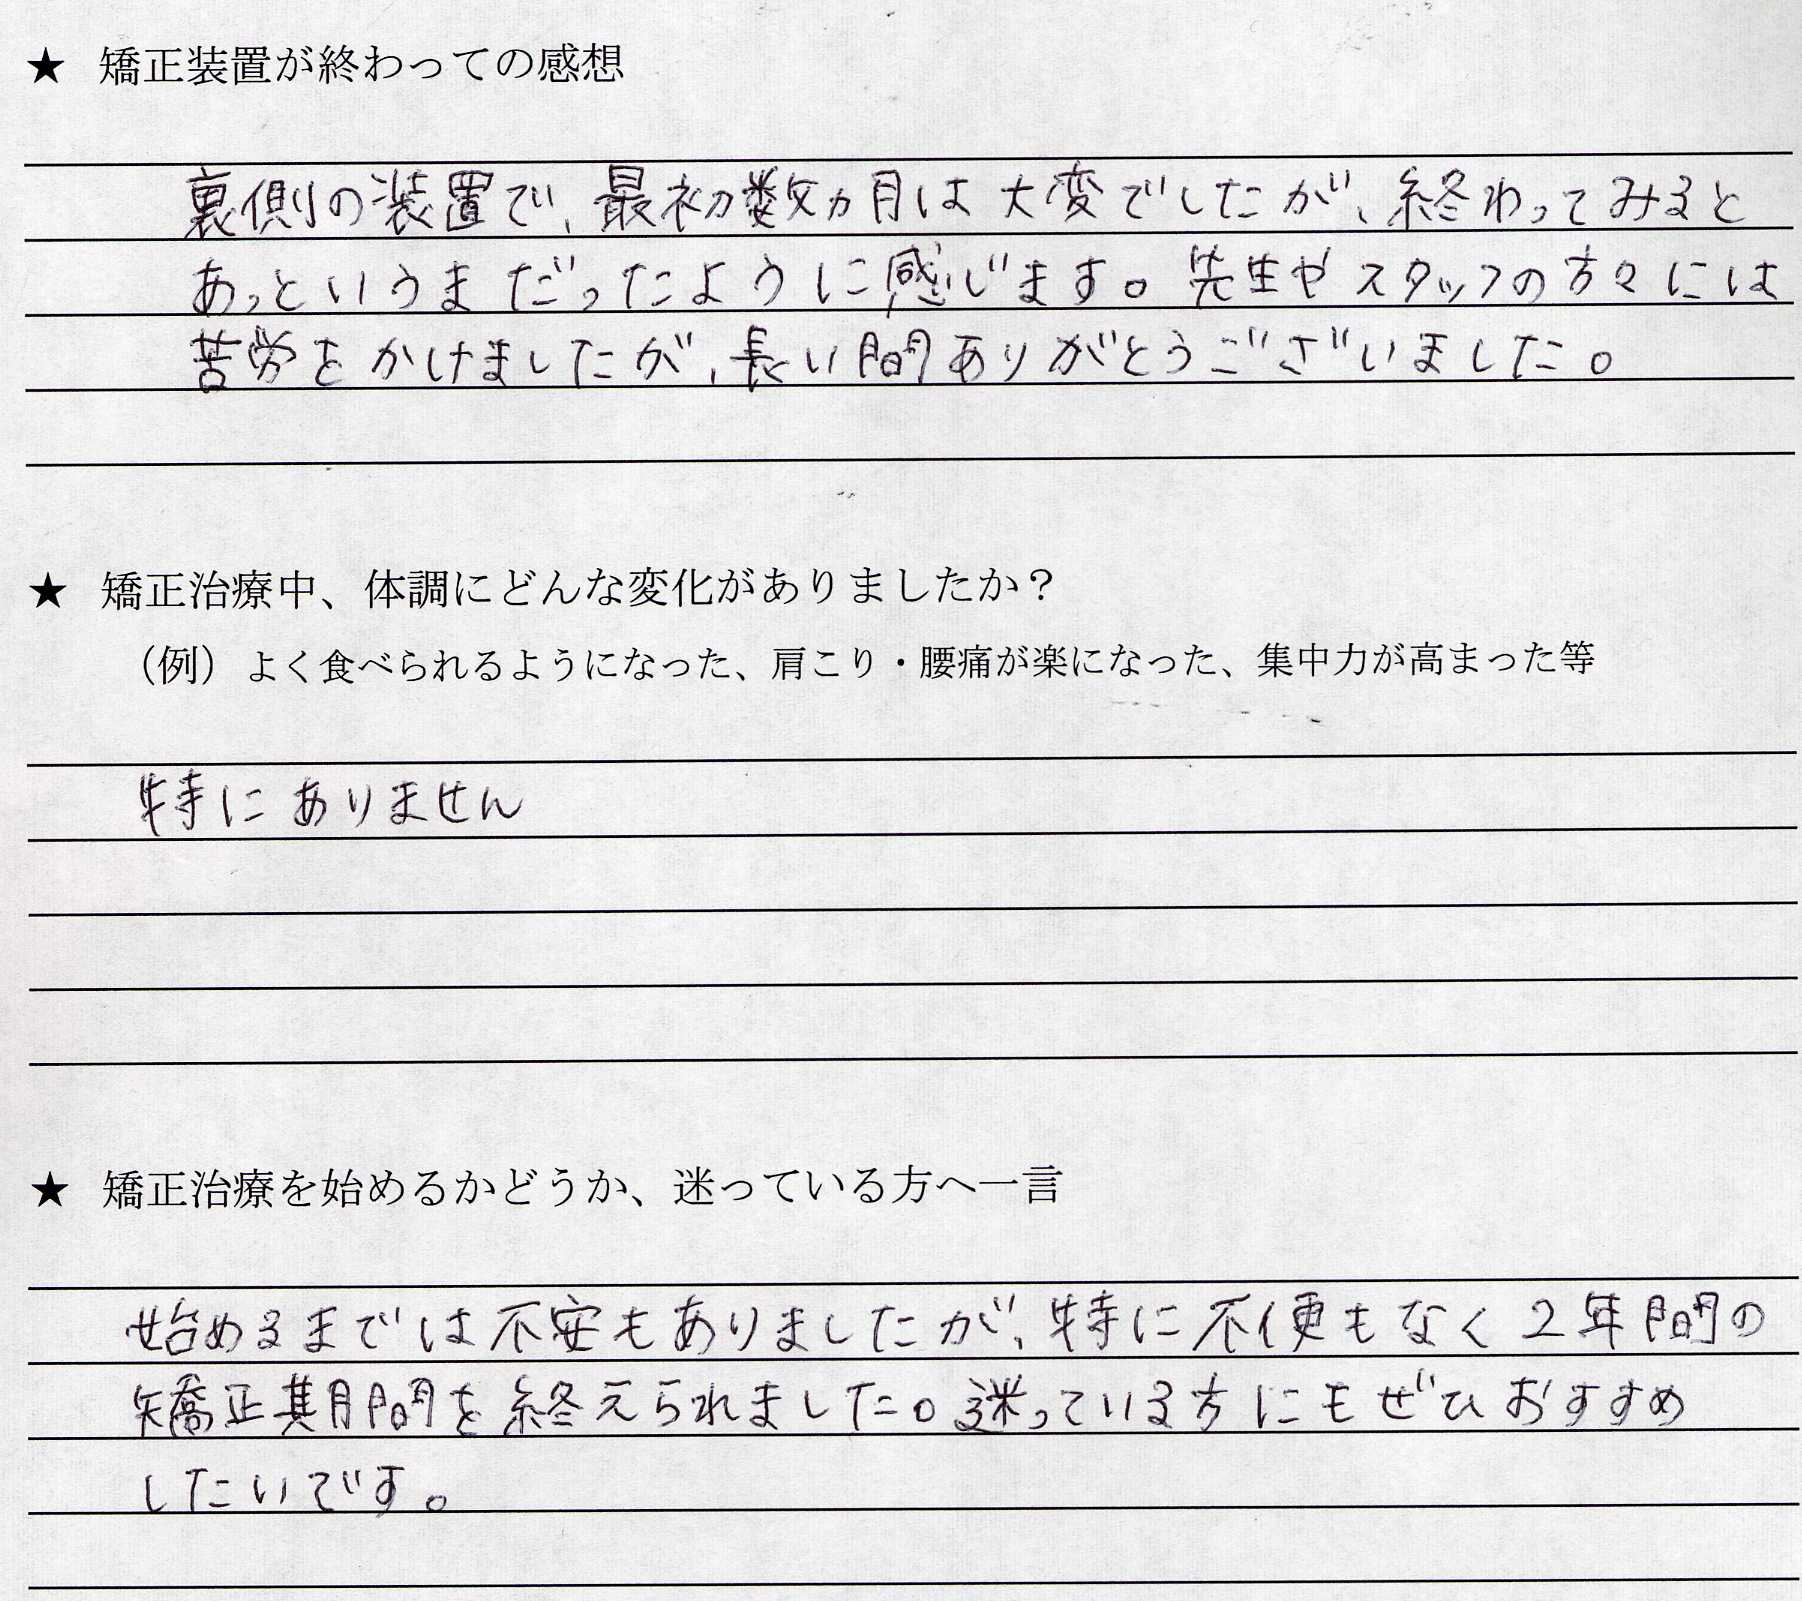 ★ 矯正装置が終わっての感想
裏側の装置で、最初数ヵ月は大変でしたが、終わってみると
あっというまだったように感じます。先生やスタッフの方々には
苦労をかけましたが、長い間ありがとうございました。
★ 矯正治療中、体調にどんな変化がありましたか？
（例）よく食べられるようになった、肩こり・腰痛が楽になった、集中力が高まった等
特にありません
★ 矯正治療を始めるかどうか、迷っている方へ一言
始めるまでは不安もありましたが、特に不便もなく2年間の
矯正期間を終えられました。迷っている方にもぜひおすすめ
したいです。